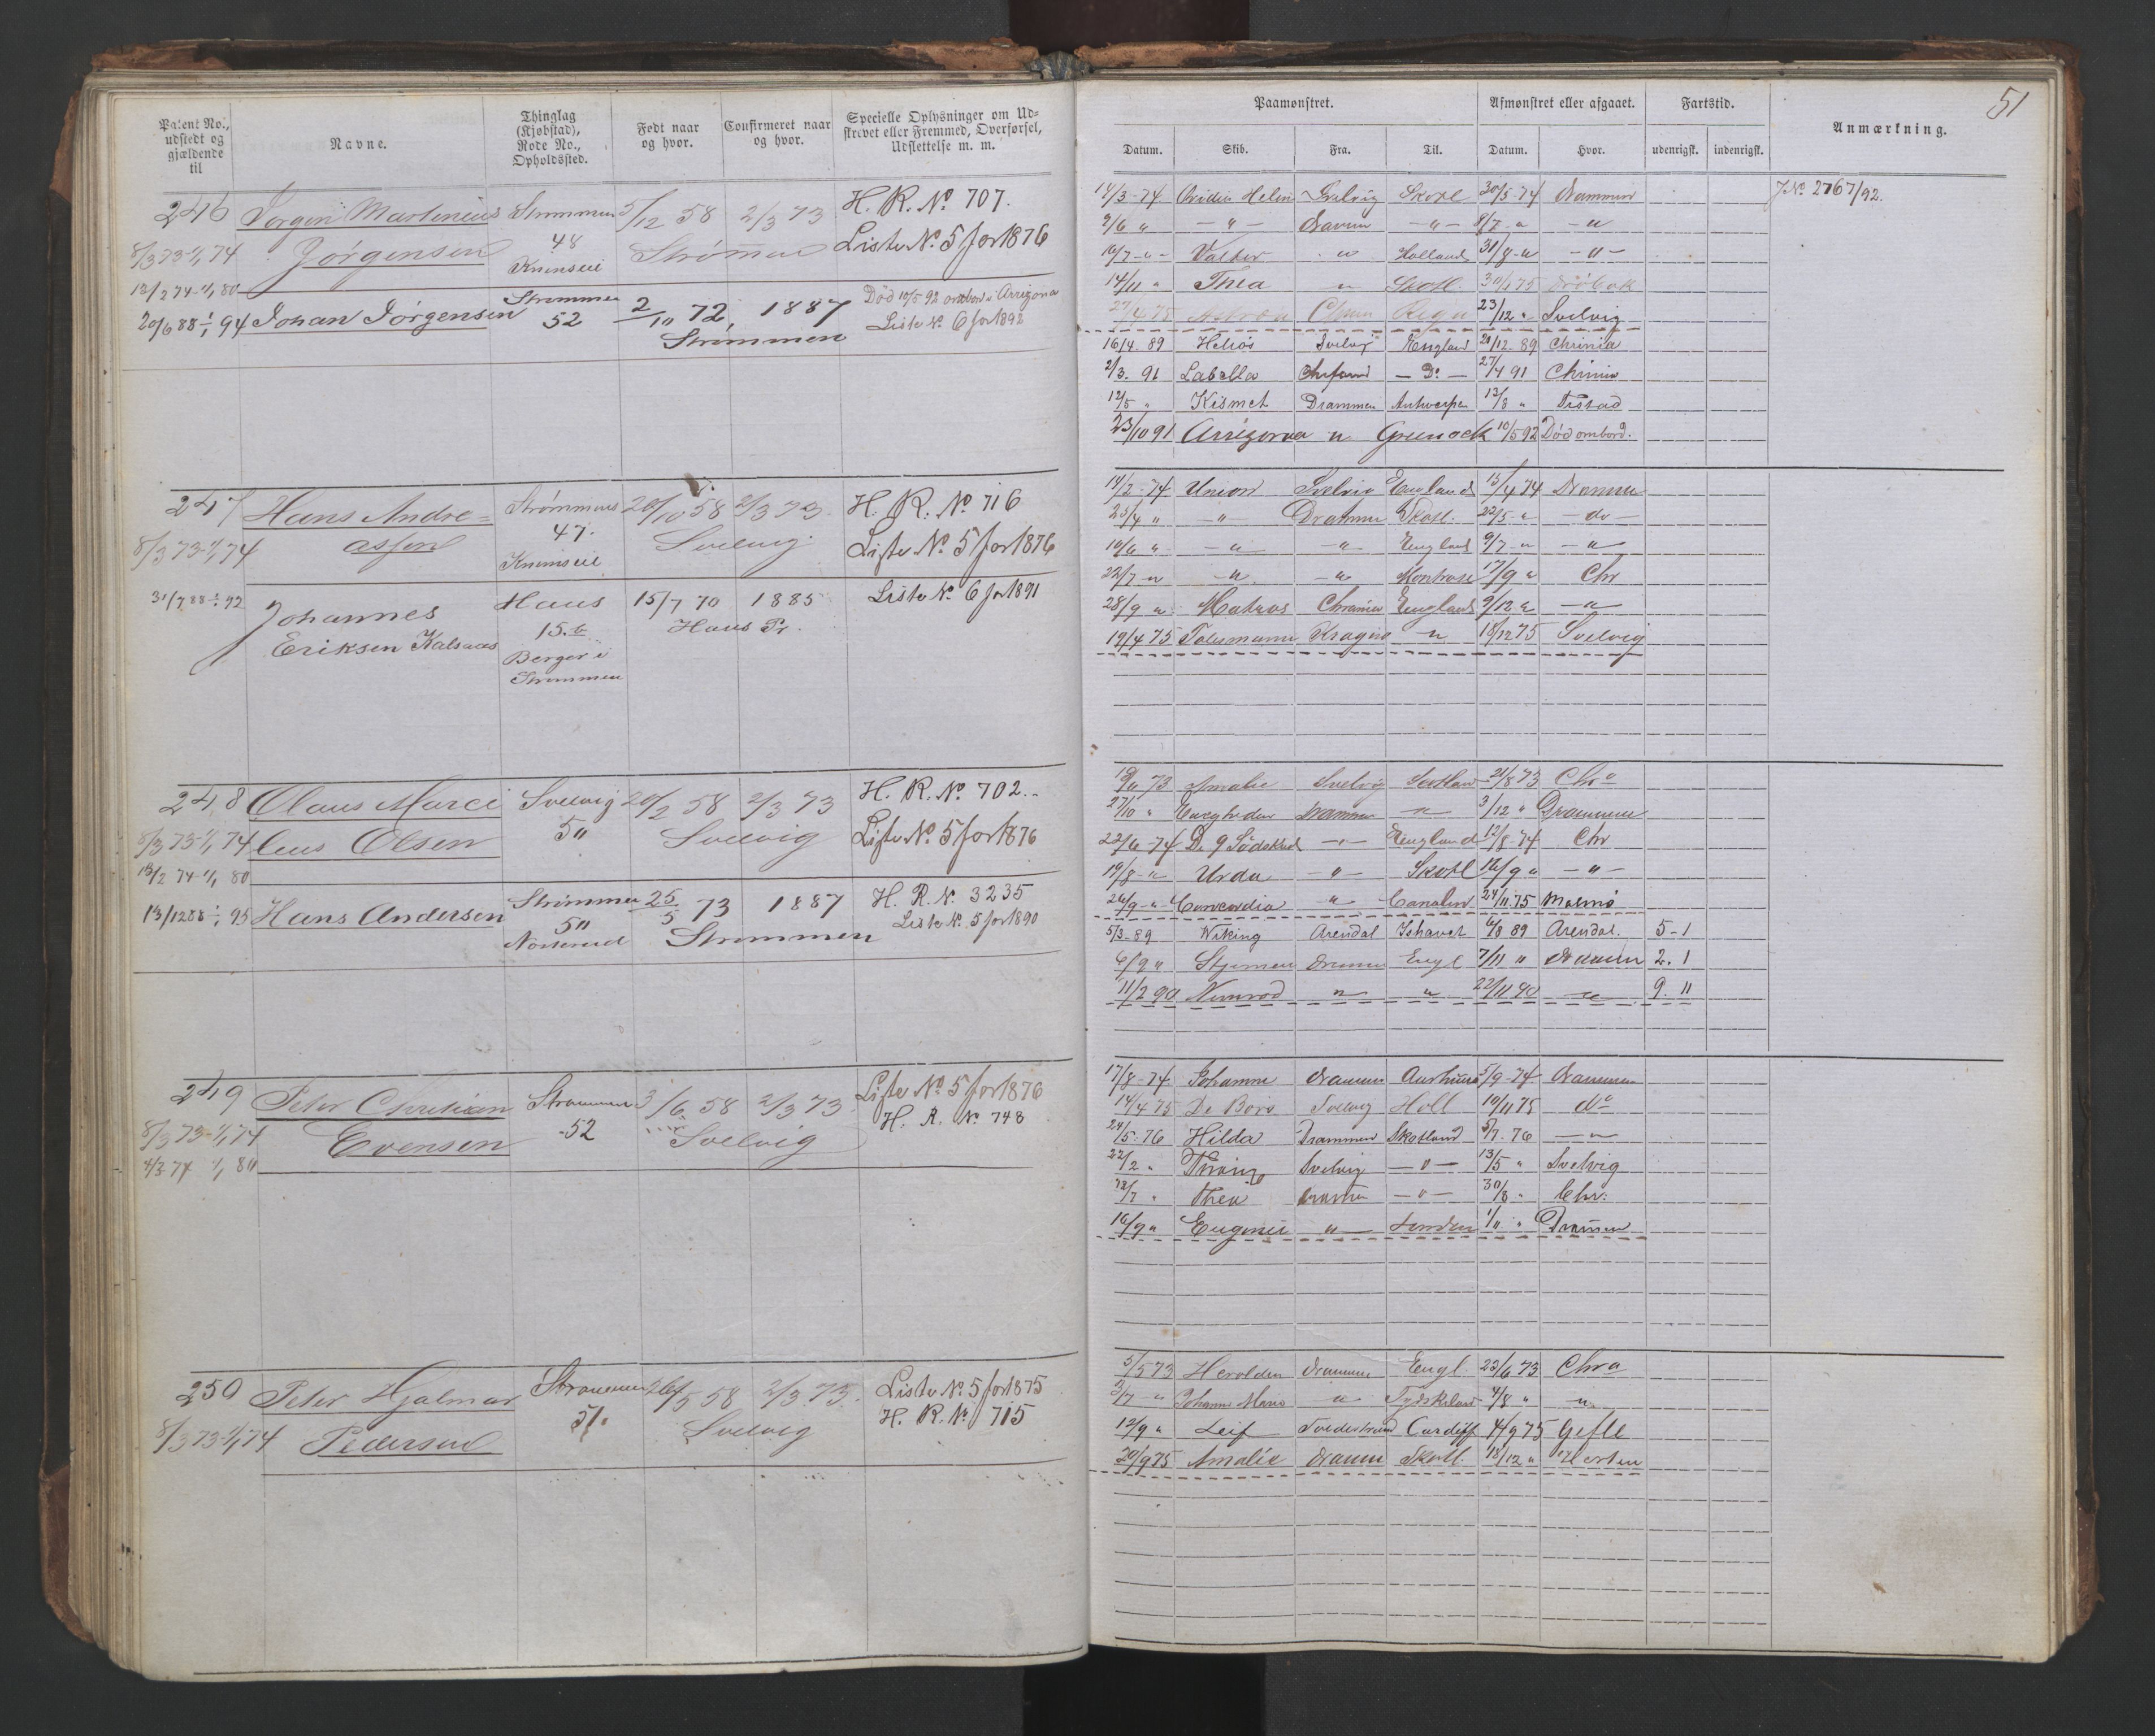 Patent No., udstedt og gjældende til
Navne.
Thinglag (Kjøbstad), Rode No., Opholdssted.
Født naar og hvor.
Confirmeret naar og hvor.
Specielle Oplysninger om Udskrevet eller Fremmed, Overførsel, Udslettelse m. m.
246 Jørgen Martinius Strømmen 5/12 58 2/3 73 H. R. No. 707.
8/3 73-1/1 74 Jørgensen 48 Strømm Liste No. 5 for 1876
13/2 74-1/1 80
20/6 88 1/1 94 Johan Jørgensen Strømmen 52 2/10 72, 1887 Død 10/5 92 ombord i Arrizona
Strømmen Liste No. 6 for 1892
247 Hans Andre= Strømmens 20/10 58 2/3 73. H. R. No. 716
8/3 73-1/1 74 assen 47. Svelvig. Liste No. 5 for 1876
31/7 88 1/1 92 Johannes Haus 15/7 70 1885 Liste No. 6 for 1891
Eriksen Kalsaas 15.b Haus Pr.
Berger i
Strømmen
248 Olaus Marci Svelvig 20/2 58 2/3 73 H. R. No. 702.
8/3 73-1/1 74 lius Olsen 50 Svelvig Liste No. 5 for 1876
13/2 74-1/1 80
13/12 88 1/1 95 Hans Andersen Strømmen 25/5 73 1887 H. R. No. 3235
50 Strømmen Liste No. 5 for 1890
249 Peter Christian Strømmen 3/6 58 2/3 73 Liste No. 5 for 1876
8/3 73-1/1 74 Evensen 52 Svelvig H. R. No. 748
4/3 74 1/1 80
250 Peter Hjalmar Strømmen 58 2/3 73. Liste No. 5 for 1875
8/3 73-1/1 74 Pedersen 51. Svelvig H. R. No. 715
51
Paamønstret.
Afmønstret eller afgaaet.
Fartstid.
Anmærkning.
Datum. Skib. Fra. Til. Datum. Hvor. udenrigsk. indenrigsk.
14/3-74 Svelvig Skotl 30/5-74 Drammen J No. 2767/92.
9/6 " — " — Dramm — " — 8/7 - " — "
Holland 31/8 - " — " —
14/11 " Thea " Skotl. 30/1 75 Drøbak
27/4 75 Astræa Riga 23/12 " Svelvig
16/4. 89 Helios Svelvig England 20/12. 89 Chrinia
2/3. 91 Labella — Do — 27/4 91 Chrinia
12/5 " Kismet Drammen Antwerpen 13/8 " Tistad
23/10 91 Arrizona " Greenock 10/5 92 Død ombord.
14/2-74 Union Svelvig England 13/4 74 Drammen
23/4 " — " — Drammen Skotl. 22/5 - " — do —
10/6 " — " — — " — England 9/7 - " — "
22/7 - " — " — — " — Montrose 17/9 " Chr
28/9 " Matros Chrania England 9/12 " — "
19/4 75 Talismann Kragerø — " 18/12 75 Svelvig
73 Amalie Svelvig Skotland 21/8 73 Chra
27/10 " Drammen — " 3/12 " Drammen
22/6-74 — " — England 12/8-74 Chr
19/8 - " Urda — " — Skotl 16/9 " — " —
26/9 - " Concordia — " Canalen 24/11 75 Malmø
5/3-89 Wiking Arendal Ishavet 6/8 89 Arendal. 5-1
6/9 " Stjernen Drammen Engl 7/11 " Dramm 2. 1
11/2 90 Nimrod — " — " 22/11 90 — " 9. 11
17/8-74. Johanne Drammen 5/9-74 Drammen
14/4 75 De Bors Svelvig Holl 10/11 75 do
24/5-76 Hilda Drammen Skotland 5/7. 76 — "
22/2 " Svelvig — " — 13/5 " Svelvig
Thea Dramm — " — 30/8 " Chr.
16/9 " Eugenie " London 1/11 " Drammen
5/5 73 Herolden Drammen Engl. 23/6 73 Chra
2/7 - " Johanne Marie " Tydskland 4/8 " "
12/9 " Leif Tvedestrand Cardiff 4/9 75 Gefle
20/9 75 Amalie Dramm Skotl. 18/12 " Horten